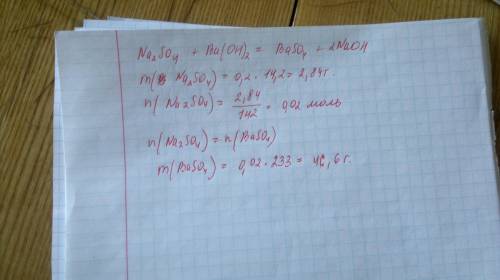 Na2SO4 + Ba(OH)2 = BaSO4 + 2NaOH
m( Na2SO4) = 0,2 · 14,2 = 2,84 г.
n( Na2SO4) = 2,84/142 = 0,02 моль
n(Na2SO4) = n(BaSO4)
m(BaSO4) = 0,02 · 233 = 46,6 г.